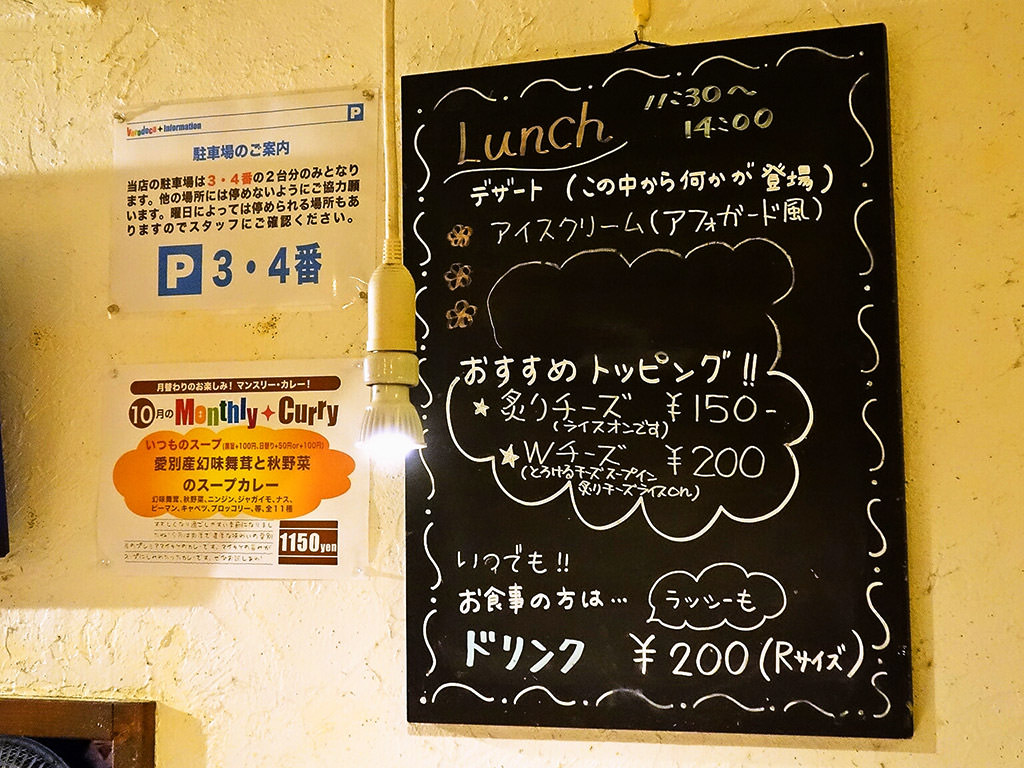 Vorodoco+Information
P
駐車場のご案内
当店の駐車場は3・4番の2台分のみとなり
ます。他の場所には停めないようにご協力願
います。曜日によっては停められる場所もあ
りますのでスタッフにご確認ください。
P 3・4番
月替わりのお楽しみ！マンスリー・カレー！
10月の Monthly Curry
いつものスープ
愛別産幻味舞茸と秋野菜
のスープカレー
幻味舞茸、秋野菜、ニンジン、ジャガイモ、ナス、
ピーマン、キャベツ、ブロッコリー、等、全11種
1150yen
Lunch 11:30〜
14:00
デザート (この中から何かが登場)
アイスクリーム(アフォガード風)
おすすめトッピング!!
★炙りチーズ ¥150-
(ライスオンです)
★Wチーズ ¥200
(とろけるチーズスープイン
炙りチーズライスOn)
いつでも!!
お食事の方は… ラッシーも
ドリンク ¥200(Rサイズ)